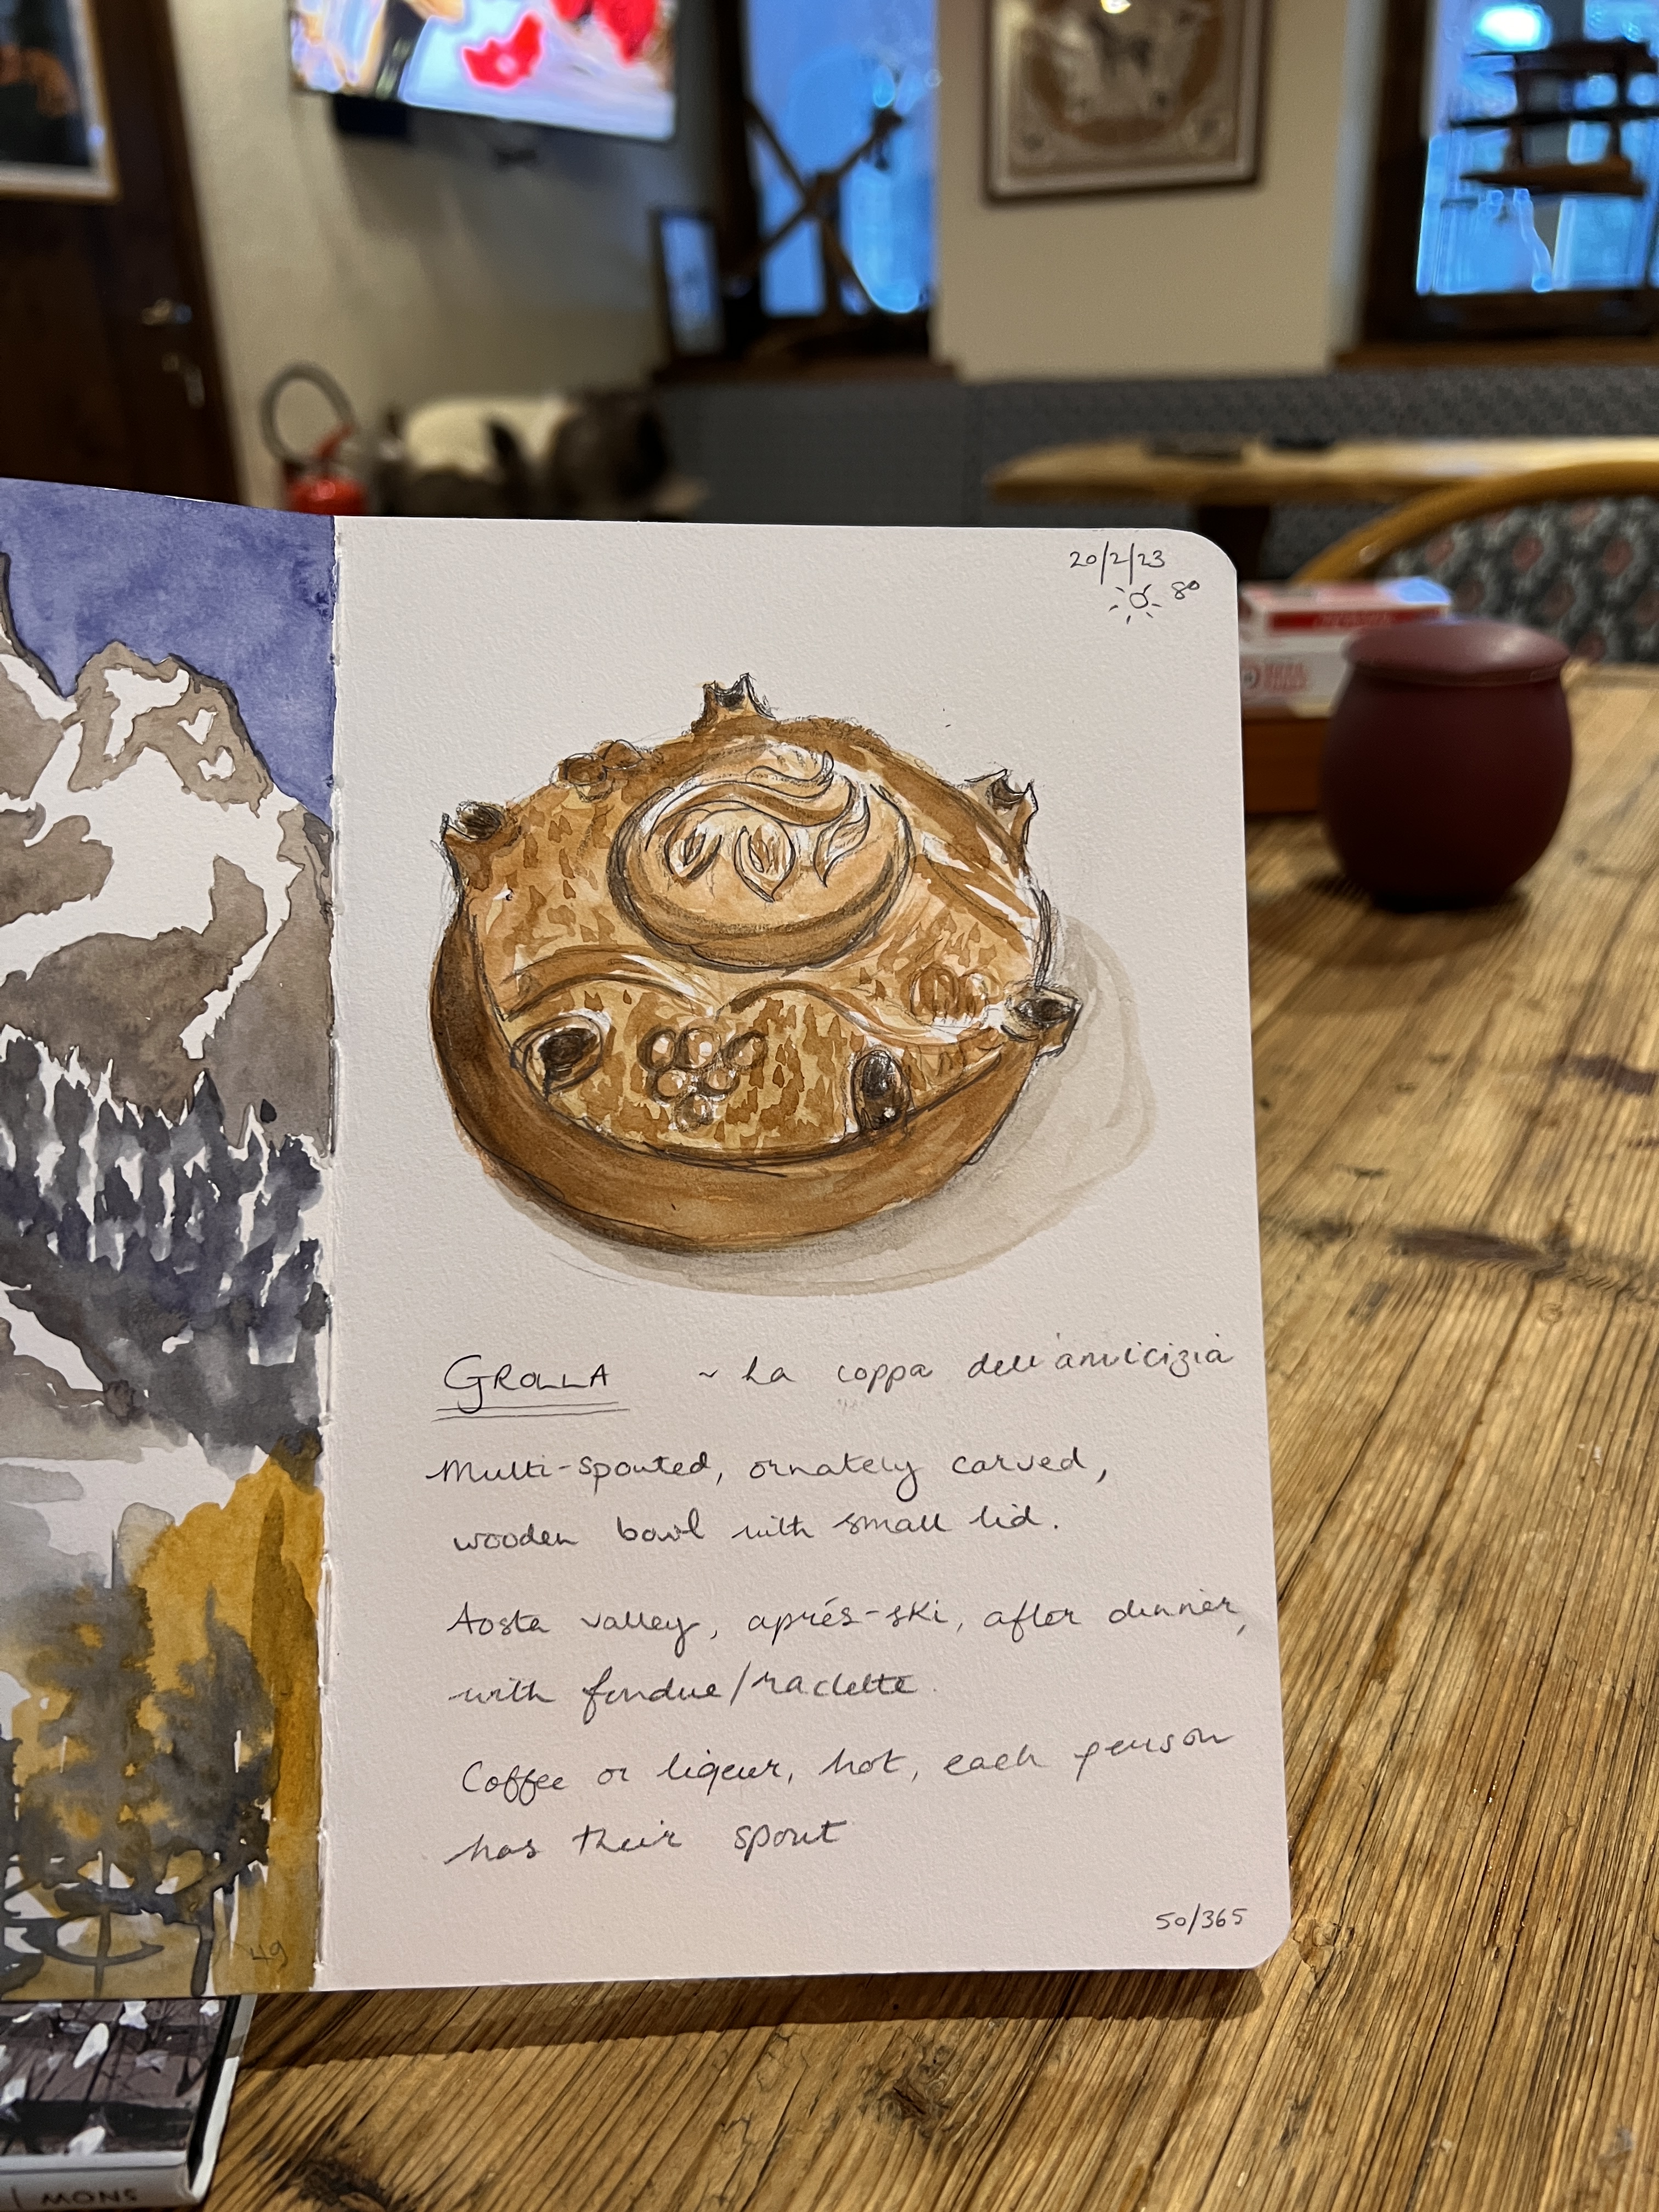 20/2/23
8°
GROLLA ~ La coppa dell'amicizia
Multi-spouted, ornately carved,
wooden bowl with small lid.
Aosta valley, aprés-ski, after dinner,
with fondue/raclette.
Coffee or liqeur, hot, each person
has their spout
50/365
49
MONS